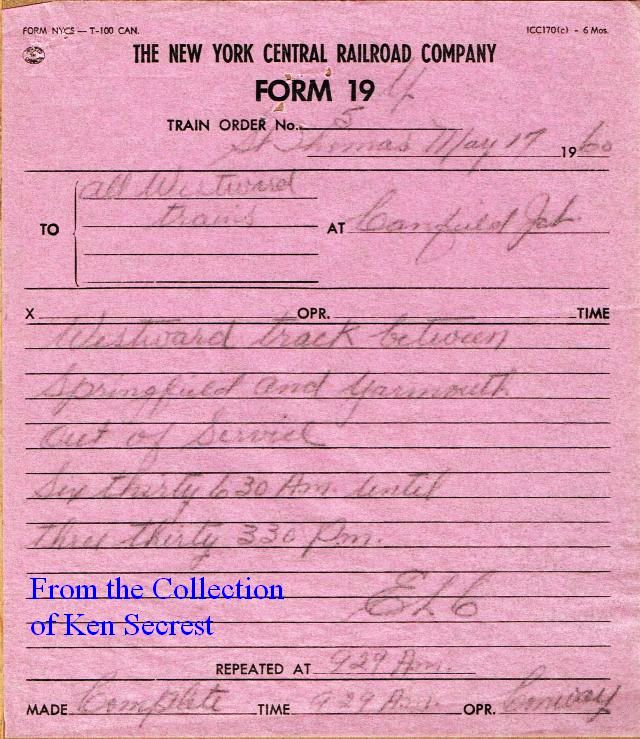 FORM NYCS — T-100 CAN. ICC170(c) - 6 Mos.
THE NEW YORK CENTRAL RAILROAD COMPANY
FORM 19
TRAIN ORDER No. 5
St Thomas May 17 1960
TO all Westward
trains AT Canfield Jct
X OPR. TIME
Westward track between
Springfield and Yarmouth
Out of Service
Six thirty 630 Am. until
three thirty 330 Pm.
From the Collection
of Ken Secrest
REPEATED AT 929 Am.
MADE Complete TIME 929 Am. OPR. Conway